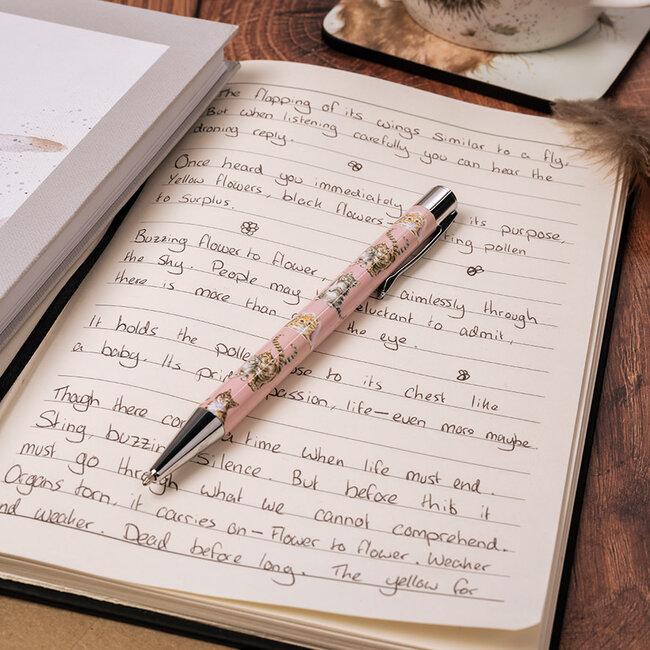 The flapping of its wings similar to a fly.
But when listening carefully you can hear the
droning reply.
Once heard you immediately its purpose,
Yellow flowers, black flowers pollen
to surplus.
Buzzing flower to flower, aimlessly through
the sky. People may reluctant to admit,
there is more than the eye.
It holds the to its chest like
a baby. Its life—even more maybe.
Though there a time when life must end.
Sting, buzzing Silence. But before this it
must go through what we cannot comprehend.
Organs torn, it carries on — Flower to flower. Weaker
and weaker. Dead before long. The yellow for